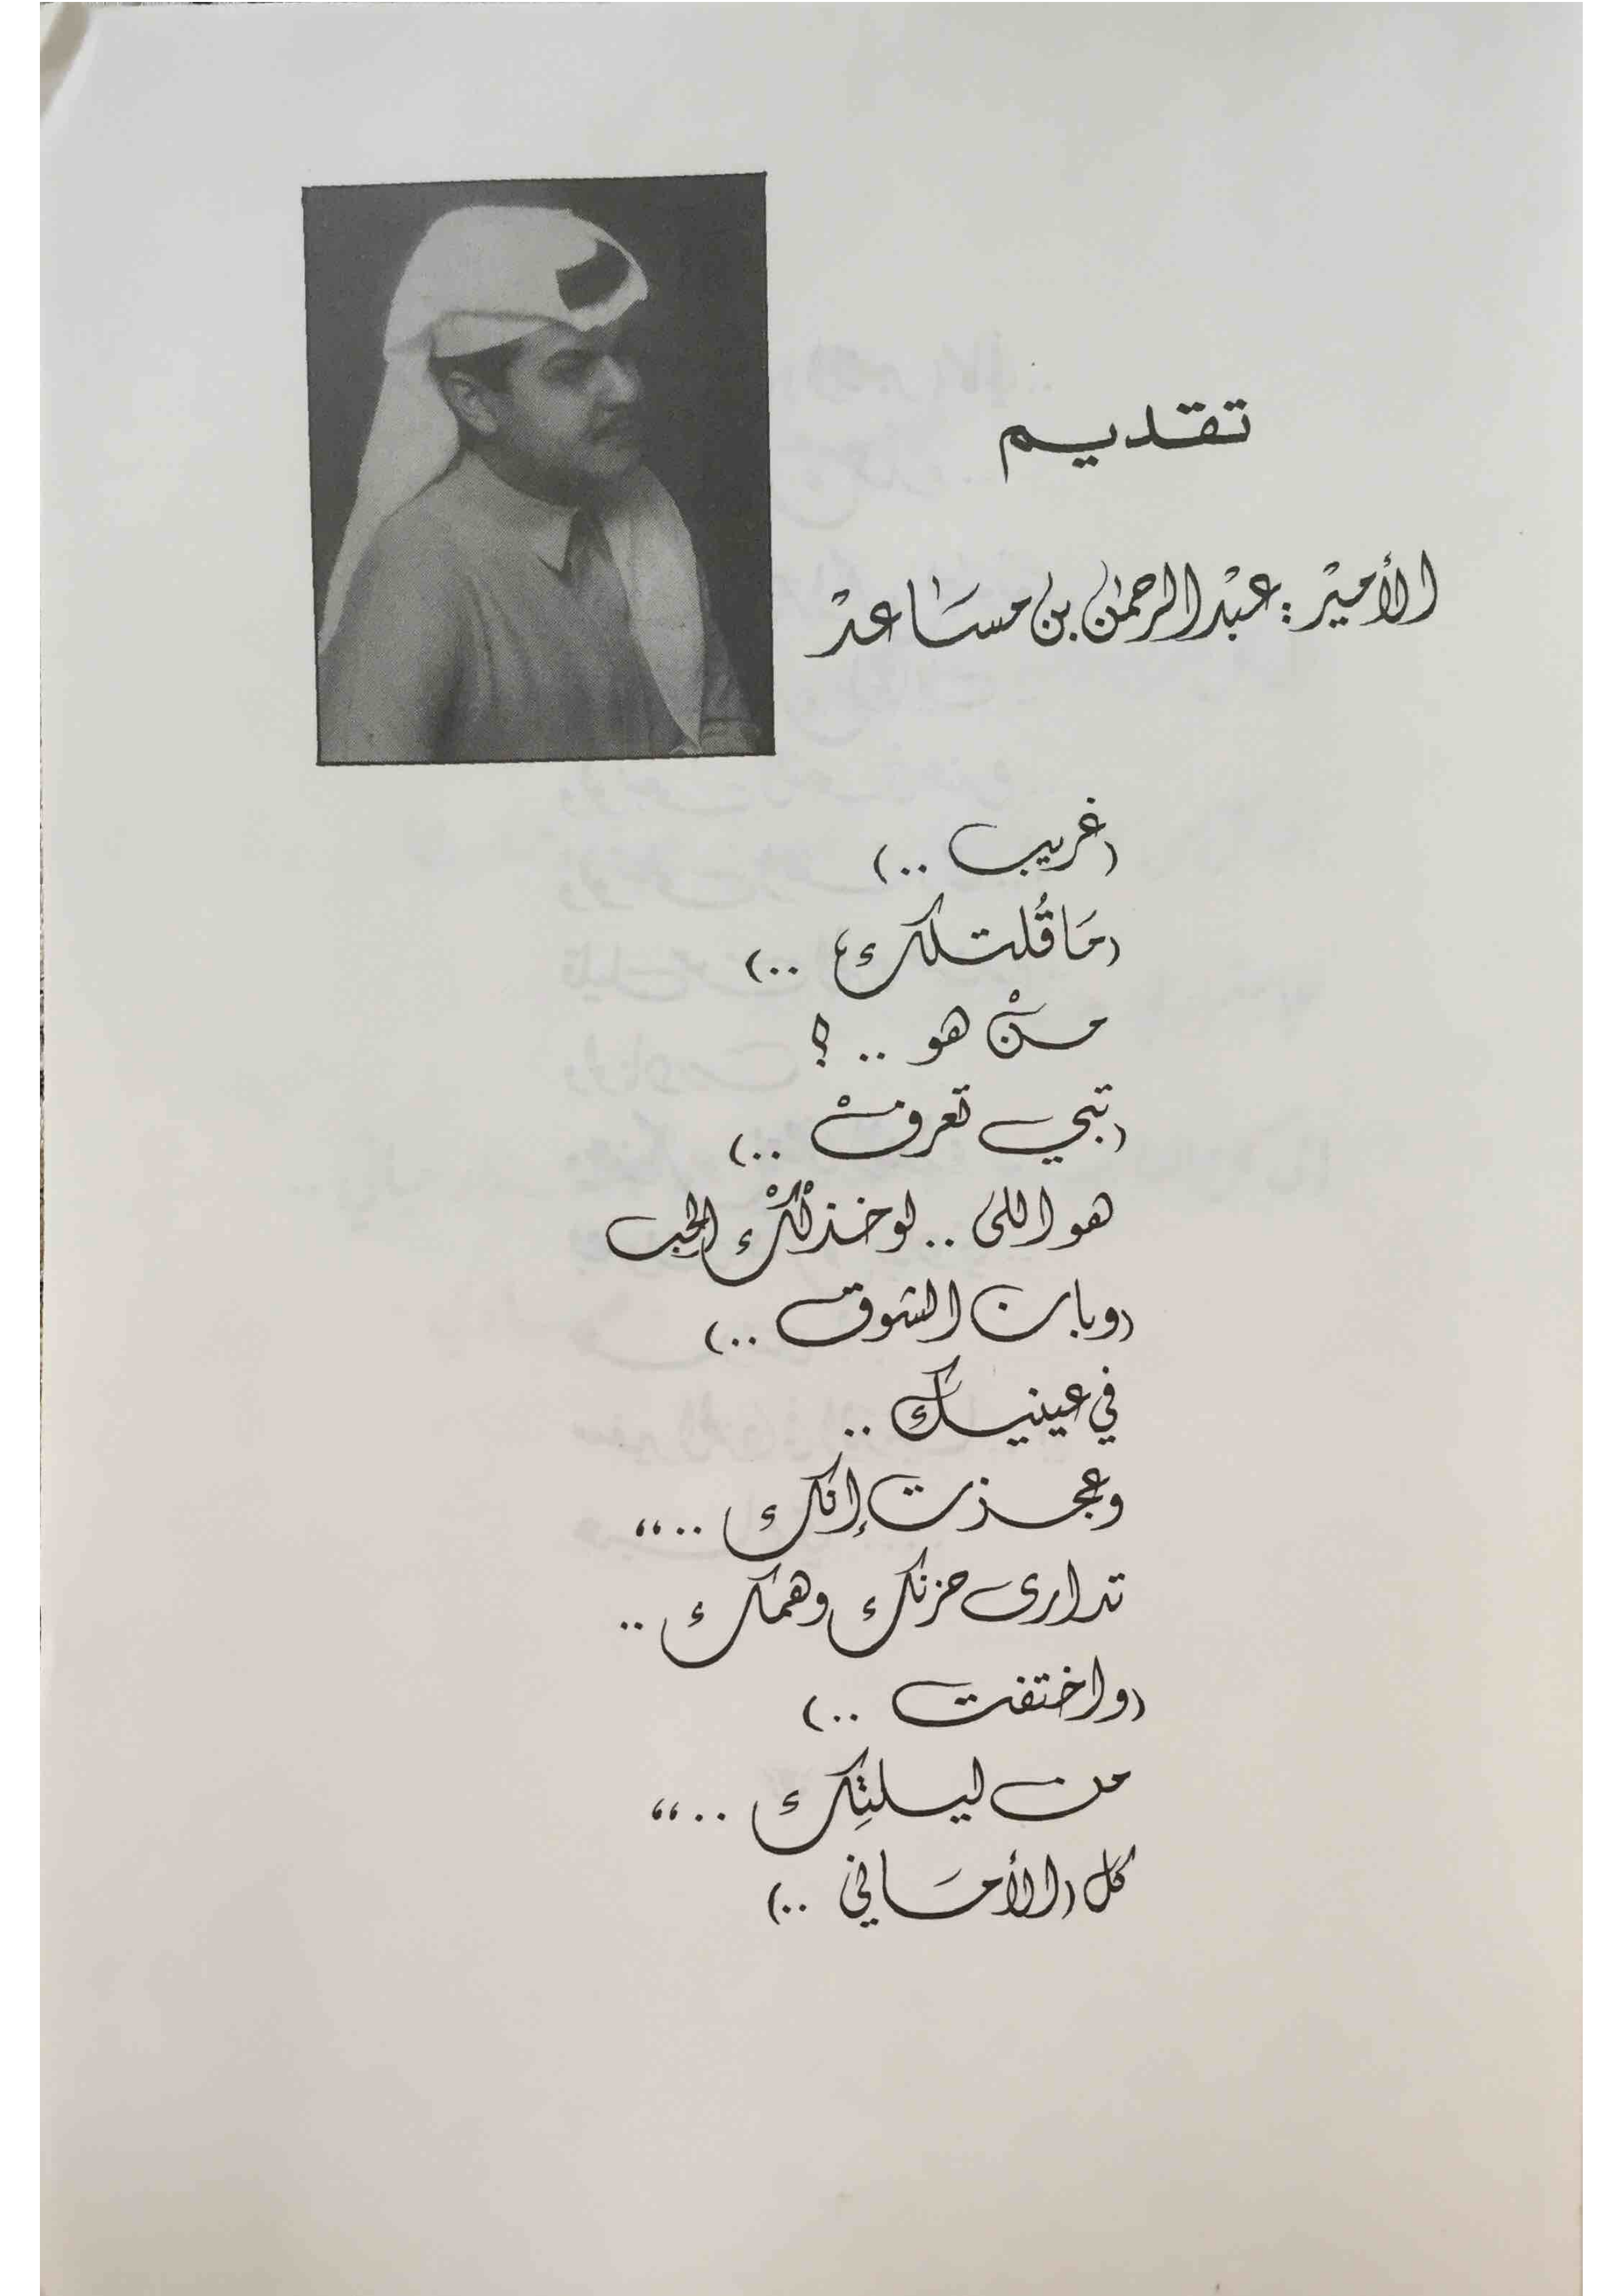 تقديم
الأميْر : عبْد الرحمٰن بن مسَاعدْ
(غريب ..)
(مَا قُلت لك ..)
منْ هو .. ؟
(تبي تعرفْ ..)
هو اللى .. لو خذلْكْ الحب
(وبان الشوق ..)
في عينيك ..
وعجزت إنك ..،،
تدارى حزنك وهمك ..
(واختفت ..)
من ليلتِك ..،،
كل (الأمَاني ..)